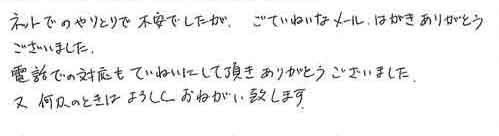 ネットでのやりとりで不安でしたが、ごていねいなメール、はがきありがとう
ございました。
電話での対応もていねいにして頂きありがとうございました。
又何かのときはよろしくおねがい致します